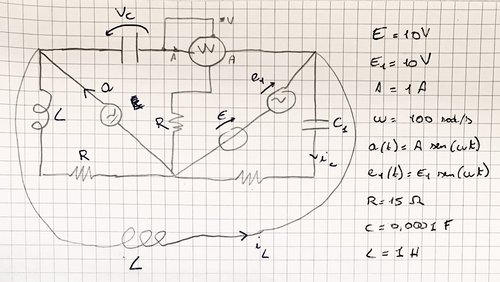 Vc
*V
W
A
A
e₁
a
E
L
R
C₁
i꜀
R
L
i_L
E = 10V
E₁ = 10V
A = 1A
ω = 100 rad/s
a(t) = A sen(ωt)
e₁(t) = E₁ sen(ωt)
R = 15 Ω
C = 0,0001 F
L = 1 H